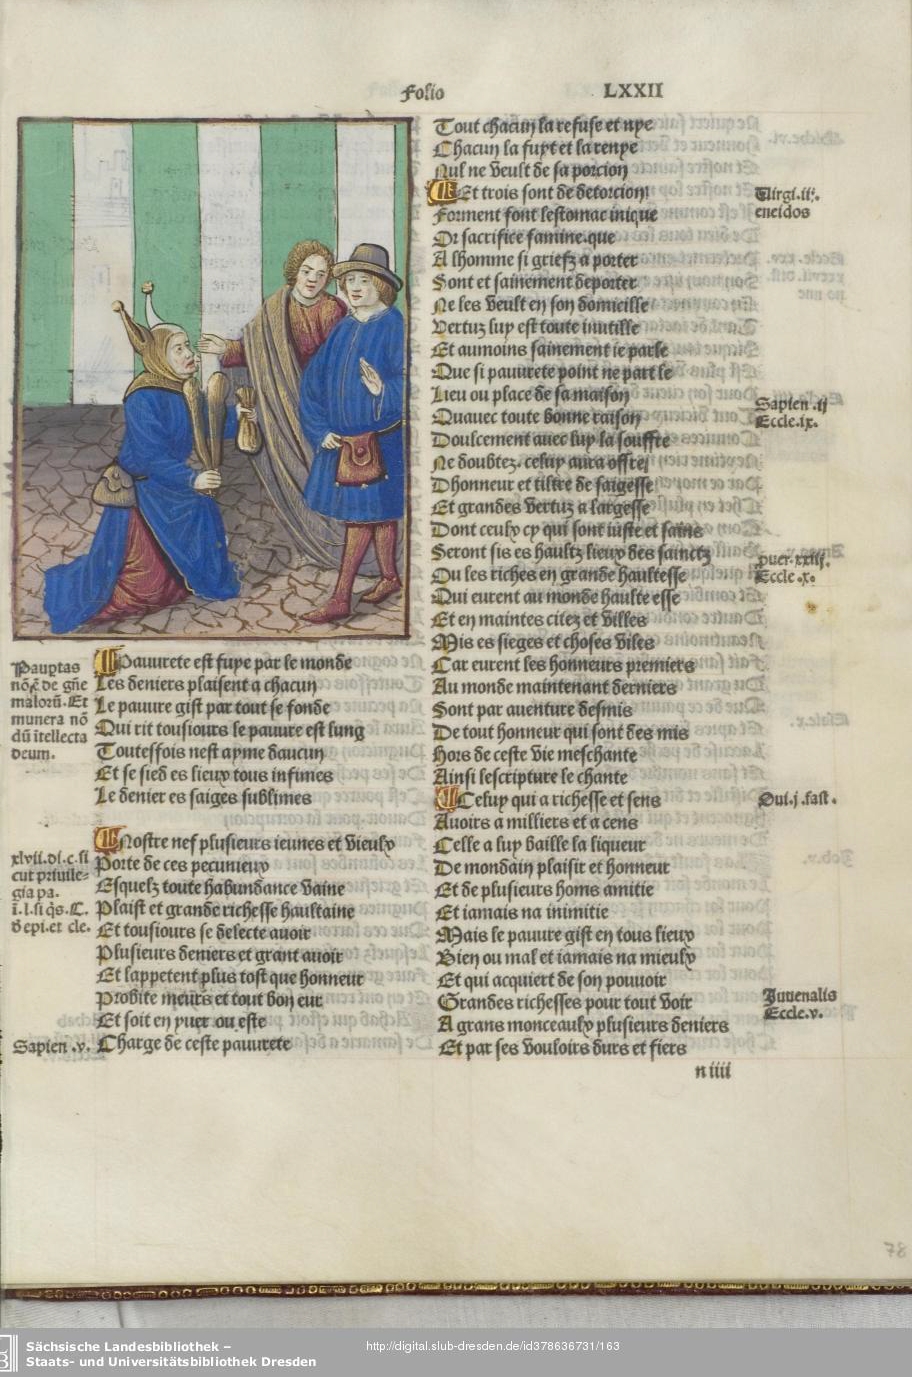 Folio LXXII
Pauptas
nō ē de gñe
malorū. Et
munera nō
dū ītellecta
deum.
Pauurete est fuye par le monde
Les deniers plaisent a chacun
Le pauure gist par tout se fonde
Qui rit tousiours le pauure est lung
Toutesfois nest ayme daucun
Et se sied es lieux tous infimes
Le denier es saiges sublimes
xlvii.di.c.si
cut priuile-
gia pa.
ī.l.si q̄s.C.
d epi.et cle.
Nostre nef plusieurs ieunes et vieulx
Porte de ces pecunieux
Esquelz toute habundance vaine
Plaist et grande richesse haultaine
Et tousiours se delecte auoir
Plusieurs deniers et grant auoir
Et lappetent plus tost que honneur
Probite meurs et tout bon eur
Et soit en yuer ou este
Sapien .v.
Charge de ceste pauurete
Tout chacun la refuse et nye
Chacun la fuyt et la renye
Nul ne veult de sa porcion
Et trois sont de detorcion
Forment font lestomac inique
Or sacrifice famine.que
A lhomme si griefz a porter
Sont et sainement deporter
Ne les veult en son domicille
Vertuz luy est toute inutille
Et aumoins sainement ie parle
Que si pauurete point ne part le
Lieu ou place de sa maison
Quauec toute bonne raison
Doulcement auec luy la souffre
Ne doubtez. celuy aura offre
Dhonneur et tiltre de saigesse
Et grandes vertuz a largesse
Dont ceulx cy qui sont iuste et sains
Seront sis es haultz lieux des sainctz
Ou les riches en grande haultesse
Qui eurent au monde haulte esse
Et en maintes citez et villes
Mis es sieges et choses viles
Car eurent les honneurs premiers
Au monde maintenant derniers
Sont par auenture desmis
De tout honneur qui sont des mis
Hors de ceste vie meschante
Ainsi lescripture le chante
Celuy qui a richesse et sens
Auoirs a milliers et a cens
Celle a luy baille la liqueur
De mondain plaisir et honneur
Et de plusieurs homs amitie
Et iamais na inimitie
Mais le pauure gist en tous lieux
Bien ou mal et iamais na mieulx
Et qui acquiert de son pouuoir
Grandes richesses pour tout voir
A grans monceaulx plusieurs deniers
Et par ses vouloirs durs et fiers
n iiii
Virgi.ii.
eneidos
Sapien .ij
Eccle.ix.
puer.xxiij.
Eccle.x.
Oui.j.fast.
Juuenalis
Eccle.v.
78
Sächsische Landesbibliothek –
Staats- und Universitätsbibliothek Dresden
http://digital.slub-dresden.de/id378636731/163